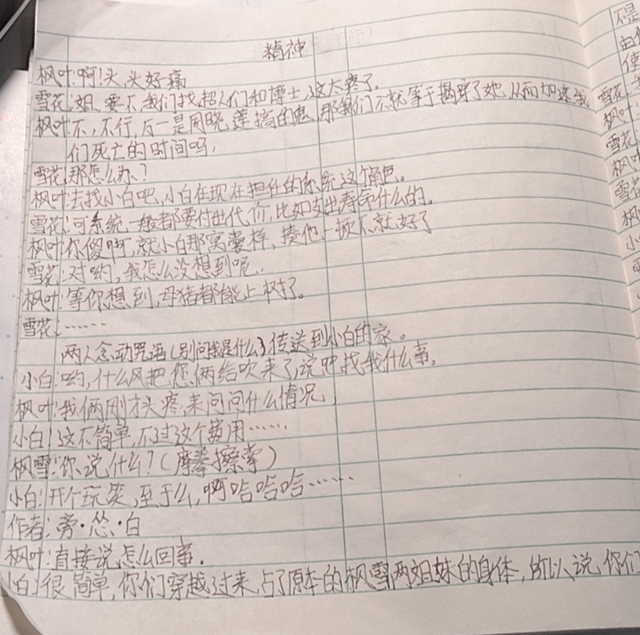 精神
枫叶:啊!头,头好痛
雪花:姐,要不,我们找超人们和博士,这太疼了
枫叶:不,不行,万一是周晓莲搞的鬼,那我们不就等于揭穿了她,从而加速我
们死亡的时间吗,
雪花:那怎么办?
枫叶:去找小白吧,小白在现在担任的系统这个角色。
雪花:可系统一般都要付出代价,比如支出寿命什么的。
枫叶:你傻啊,就小白那窝囊样,揍他一顿不就好了
雪花:对哟,我怎么没想到呢,
枫叶:等你想到,母猪都能上树了。
雪花:……
两人念动咒语(别问我是什么)传送到小白的家。
小白:哟,什么风把您俩给吹来了,说吧找我什么事。
枫叶:我俩刚才头疼,来问问什么情况,
小白:这不简单,不过这个费用……
枫雪:你说什么?(摩拳擦掌)
小白:开个玩笑,至于么,啊哈哈哈……
作者:旁·怂·白
枫叶:直接说怎么回事.
小白:很简单,你们穿越过来,占了原本的枫雪两姐妹的身体,所以说,你们
雪花
枫叶
雪花